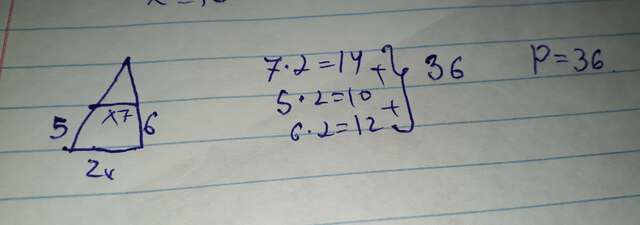 7·2=14
5·2=10
6·2=12
+
+
36
P=36
5
x7
6
2x